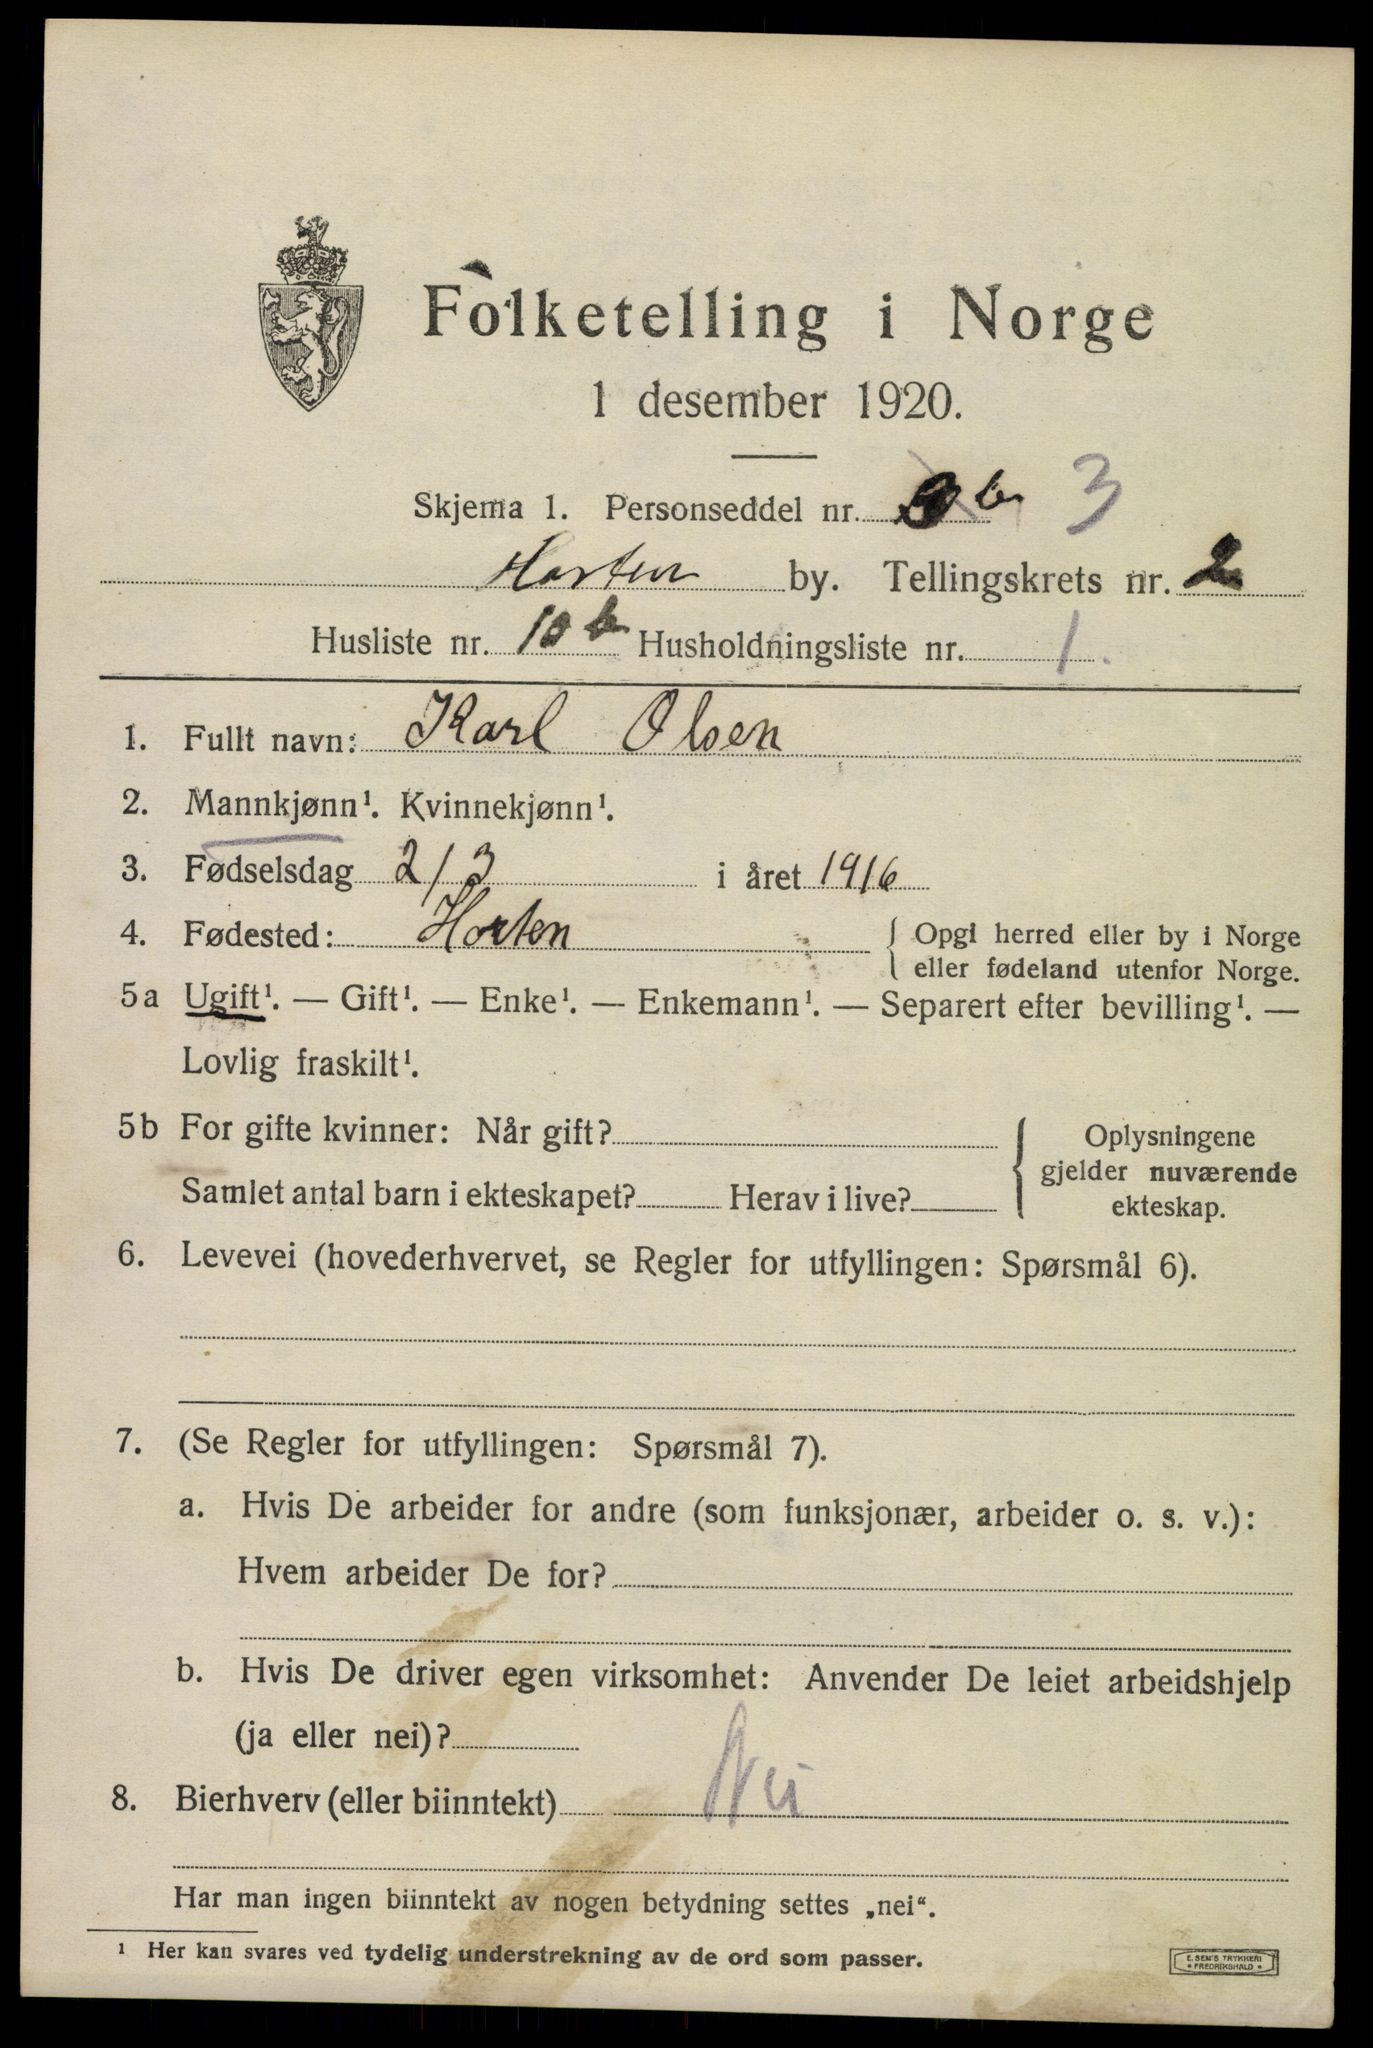 Folketelling i Norge
1 desember 1920.
Skjema 1. Personseddel nr. b 3
Horten by. Tellingskrets nr. 2
Husliste nr. 10 b Husholdningsliste nr. 1
1. Fullt navn: Karl Olsen
2. Mannkjønn¹. Kvinnekjønn¹.
3. Fødselsdag 2/3 i året 1916
4. Fødested: Horten { Opgi herred eller by i Norge
eller fødeland utenfor Norge.
5a Ugift¹. — Gift¹. — Enke¹. — Enkemann¹. — Separert efter bevilling¹. —
Lovlig fraskilt¹.
5b For gifte kvinner: Når gift? } Oplysningene
gjelder nuværende
Samlet antal barn i ekteskapet? Herav i live? ekteskap.
6. Levevei (hovederhvervet, se Regler for utfyllingen: Spørsmål 6).
7. (Se Regler for utfyllingen: Spørsmål 7).
a. Hvis De arbeider for andre (som funksjonær, arbeider o. s. v.):
Hvem arbeider De for?
b. Hvis De driver egen virksomhet: Anvender De leiet arbeidshjelp
(ja eller nei)?
8. Bierhverv (eller biinntekt) Nei
Har man ingen biinntekt av nogen betydning settes „nei“.
¹ Her kan svares ved tydelig understrekning av de ord som passer.
E. SEM'S TRYKKERI
* FREDRIKSHALD *